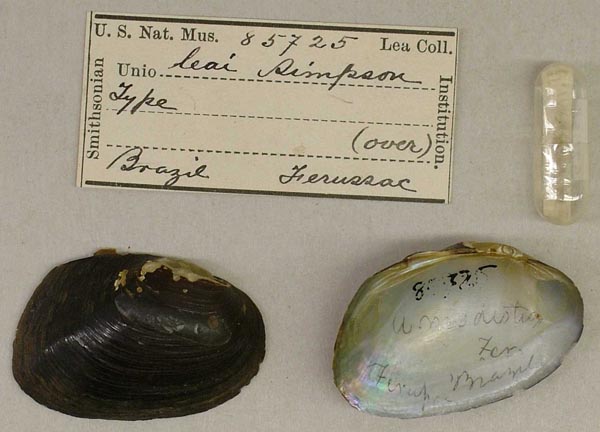 U. S. Nat. Mus. 85725 Lea Coll.
Unio leai Simpson
Type
(over)
Brazil Ferussac
Smithsonian
Institution.
85725
Fer
Brazil